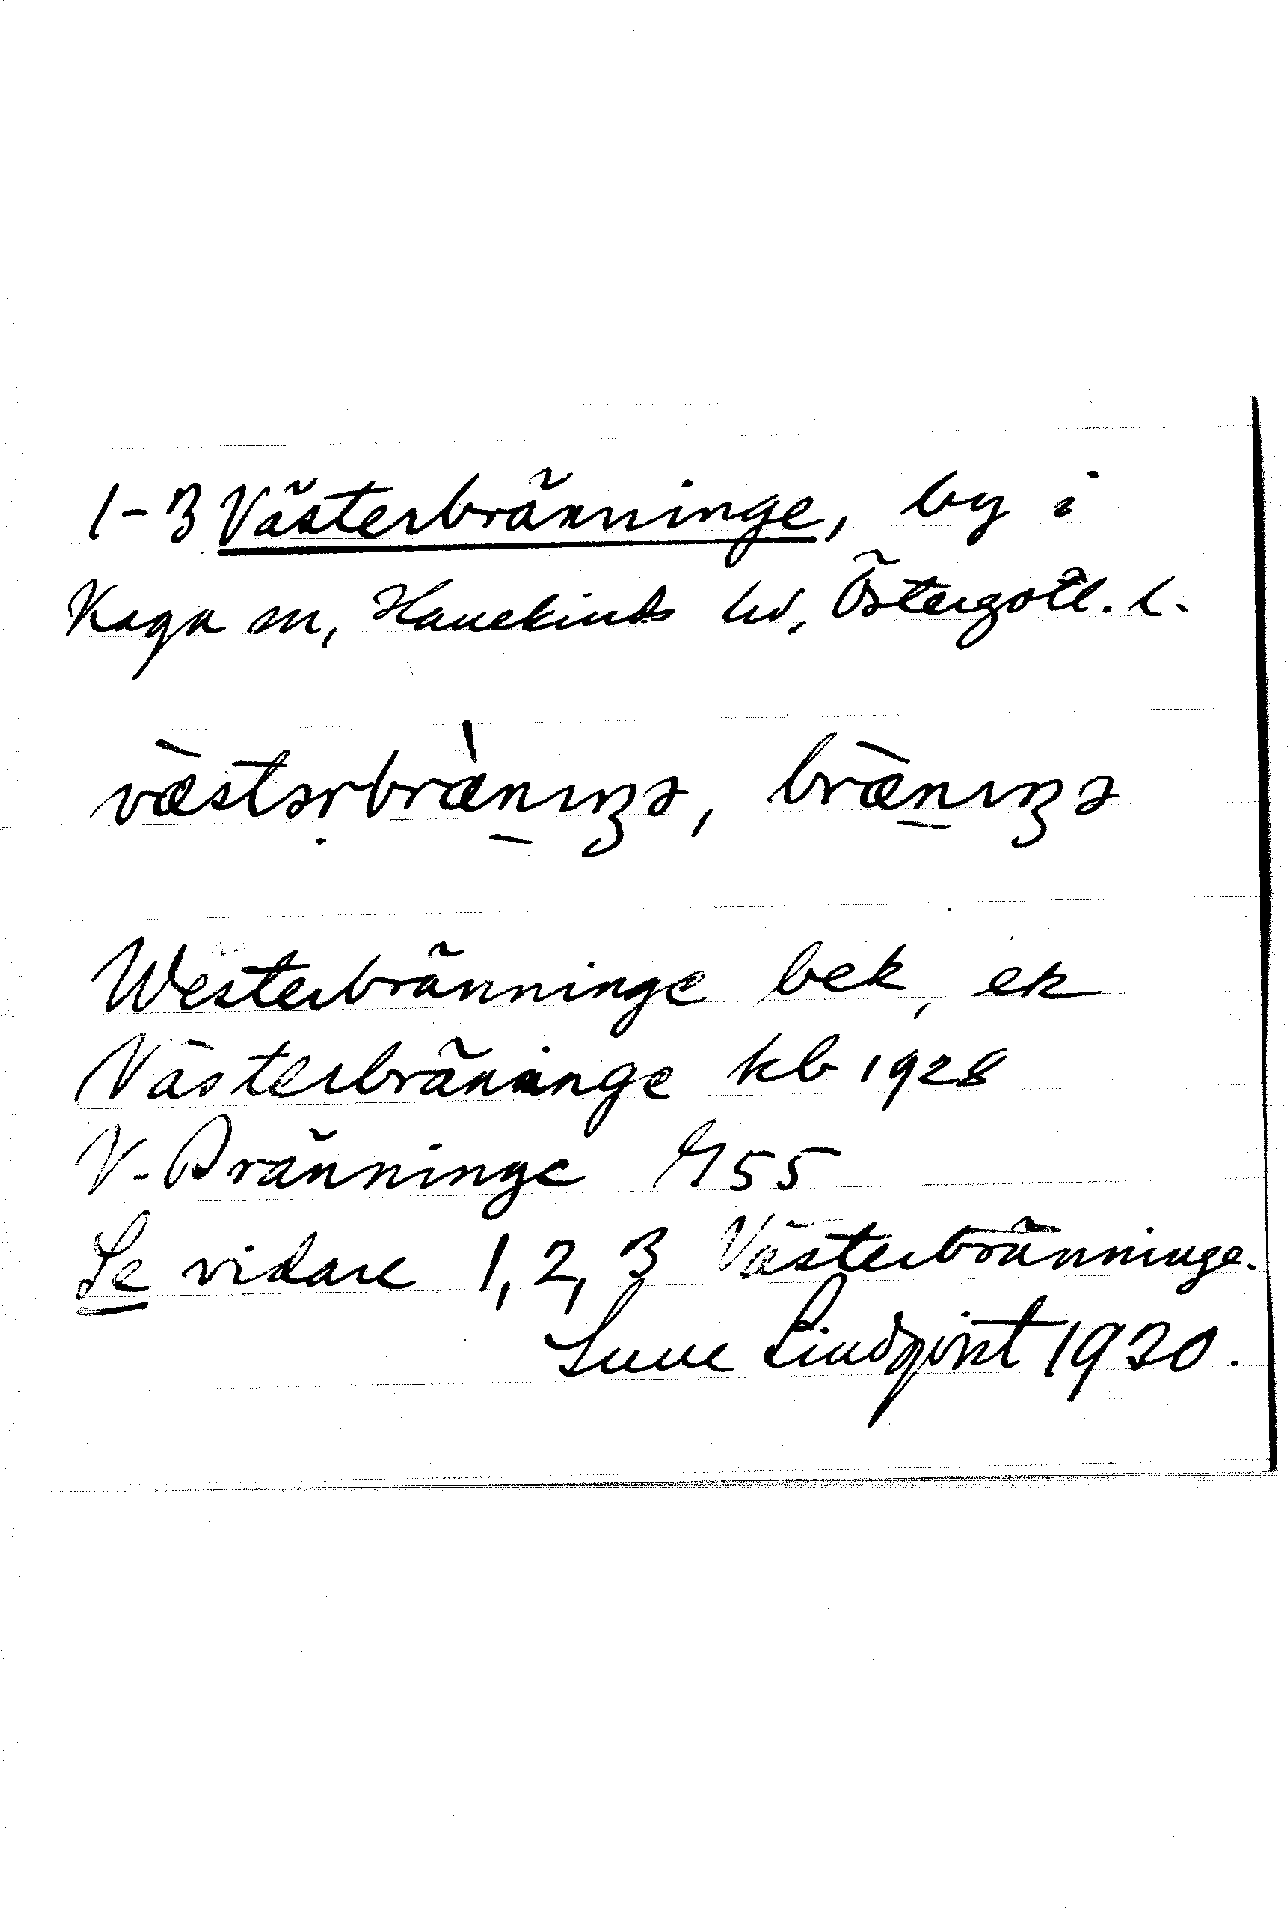 1-3 Västerbränninge, by i
Kaga sn, Hanekinds hd, Östergötl. l.
væ̀stərbræ̀nɪŋə, bræ̀nɪŋə
Westerbränninge bek, ek
Västerbränninge kb 1928
V. Bränninge G 55
Se vidare 1, 2, 3 Västerbränninge.
Sune Lindqvist 1930.